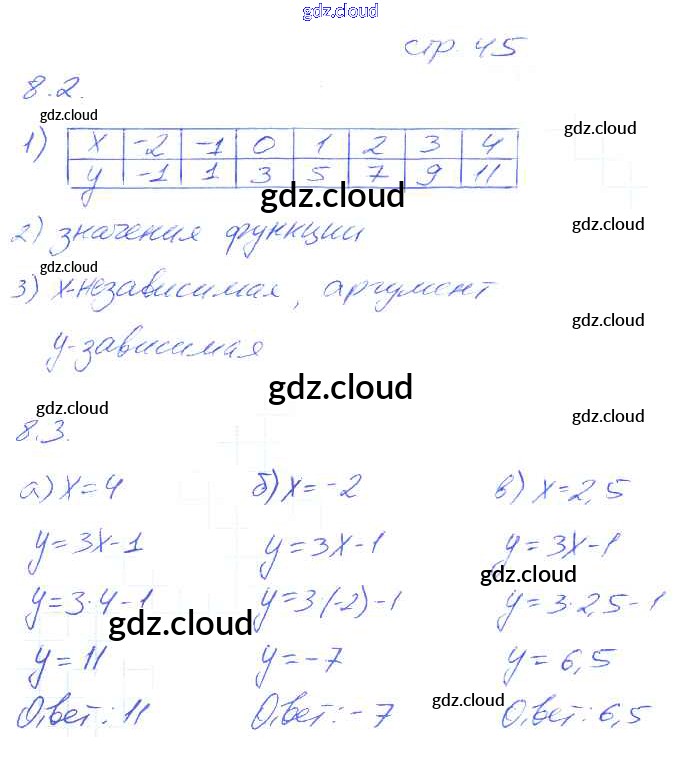 gdz.cloud
стр. 45
8.2.
gdz.cloud
gdz.cloud
1) x -2 -1 0 1 2 3 4
y -1 1 3 5 7 9 11
gdz.cloud
gdz.cloud
2) значения функции
gdz.cloud
3) x-независимая, аргумент
gdz.cloud
y-зависимая
gdz.cloud
gdz.cloud
gdz.cloud
8.3.
а) x=4 б) x=-2 в) x=2,5
y=3x-1 y=3x-1 y=3x-1
gdz.cloud
y=3·4-1 y=3·(-2)-1 y=3·2,5-1
gdz.cloud
y=11 y=-7 y=6,5
gdz.cloud
Ответ: 11 Ответ: -7 Ответ: 6,5